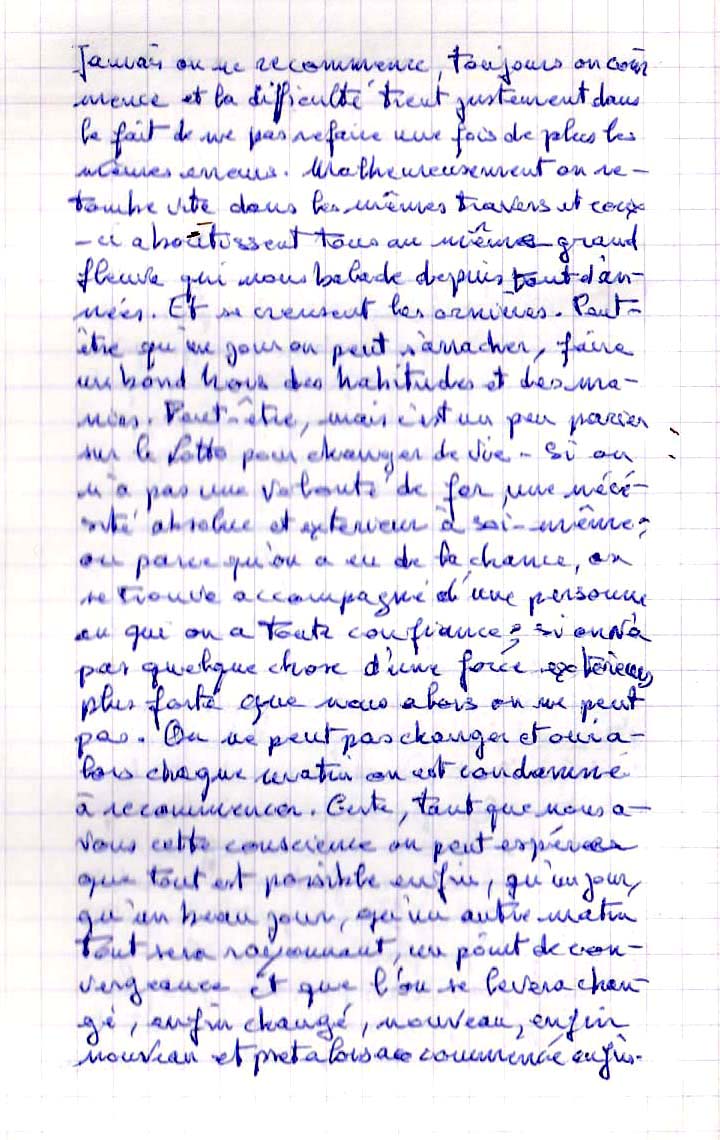 Jamais on ne recommence, toujours on com
mence et la difficulté tient justement dans
le fait de ne pas refaire une fois de plus les
mêmes erreurs. Malheureusement on re-
tombe vite dans les mêmes travers et ceux
-ci aboutissent tous au même grand
fleuve qui nous balade depuis tant d'an-
nées. Et se creusent les ornières. Peut-
être qu'un jour on peut s'arracher, faire
un bond hors des habitudes et des ma-
nies. Peut-être, mais c'est un peu parier
sur le Lotto pour changer de vie - Si on
n'a pas une volonté de fer, une néces-
sité absolue et exterieur à soi-même ;
ou parce qu'on a eu de la chance, on
se trouve accompagné d'une personne
en qui on a toute confiance ; si on n'a
pas quelque chose d'une force exterieure
plus forte que nous alors on ne peut
pas. On ne peut pas changer et oui a-
lors chaque matin on est condamné
à recommencer. Certe, tant que nous a-
vons cette conscience on peut espérer
que tout est possible enfin, qu'un jour,
qu'un beau jour, qu'un autre matin
tout sera rayonnant, un point de con-
vergeance et que l'on se levera chan-
gé, enfin changé, nouveau, enfin
nouveau et pret alors a commencé enfin.